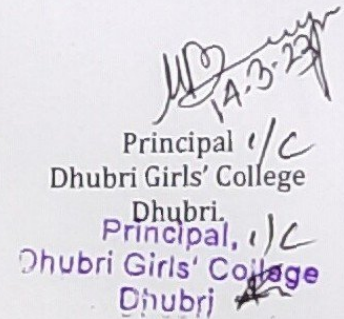 14.3.23
Principal I/C
Dhubri Girls' College
Dhubri.
Principal, I/C
Dhubri Girls' College
Dhubri